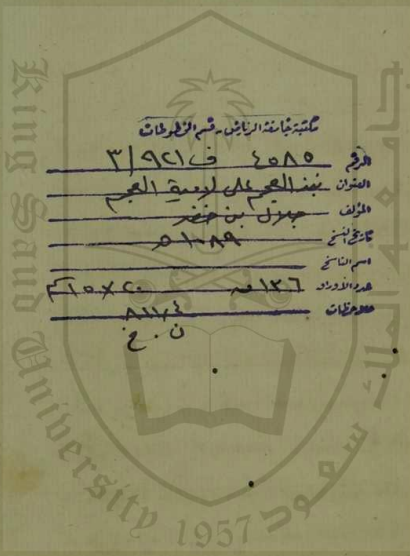 مكتبة جامعة الرياض - قسم المخطوطات
الرقم ٤٥٨٥ ف ٩٢١/٣
العنوان نبذ العجم على لامية العجم
المؤلف جلال بن خضر
تاريخ النسخ ١٠٨٩ هـ
اسم الناسخ
عدد الأوراق ١٣٦ ق ٢٠ × ١٥ سم
ملاحظات ٨١١/٤
ن . خ
King Saud University
1957
جامعة الملك سعود